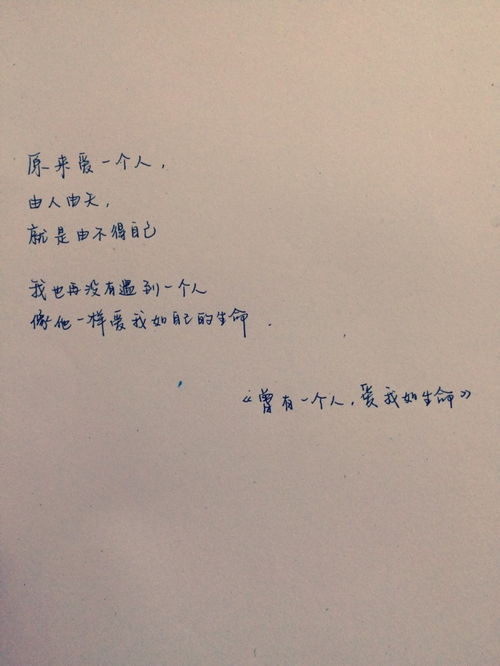 原来爱一个人，
由人由天，
就是由不得自己
我也再没有遇到一个人
像他一样爱我如自己的生命．
《曾有一个人，爱我如生命》